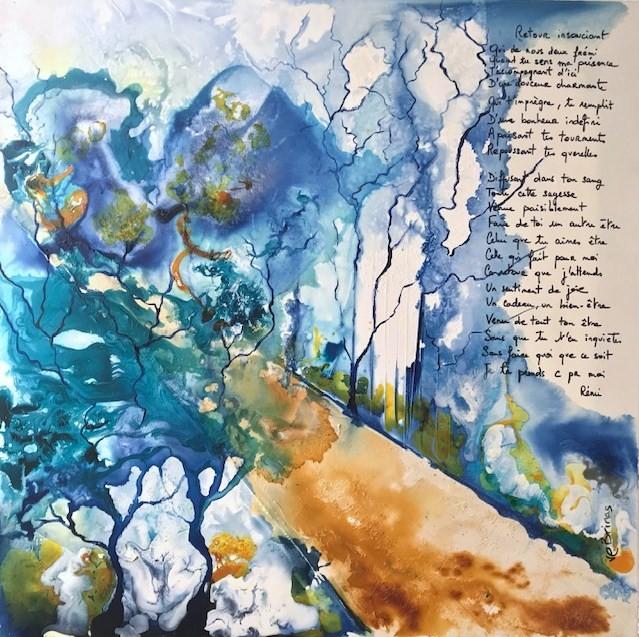 Retour insouciant
Qui de nous deux frémi
Quand tu sens ma présence
T'accompagnant d'ici
D'une douceur charmante
Qui t'imprègne, te remplit
D'une bonheur indéfini
Apaisant tes tourments
Repoussant tes querelles
Diffusant dans ton sang
Toute cette sagesse
Venue paisiblement
Faire de toi un autre être
Celui que tu aimes être
Celui qui fait pour moi
que j'attends
Un sentiment de joie
Un cadeau, un bien-être
Venu de tout ton être
Sans que tu t'en inquiètes
Sans faire quoi que ce soit
Tu te prends c pr moi
Rémi
Brinas